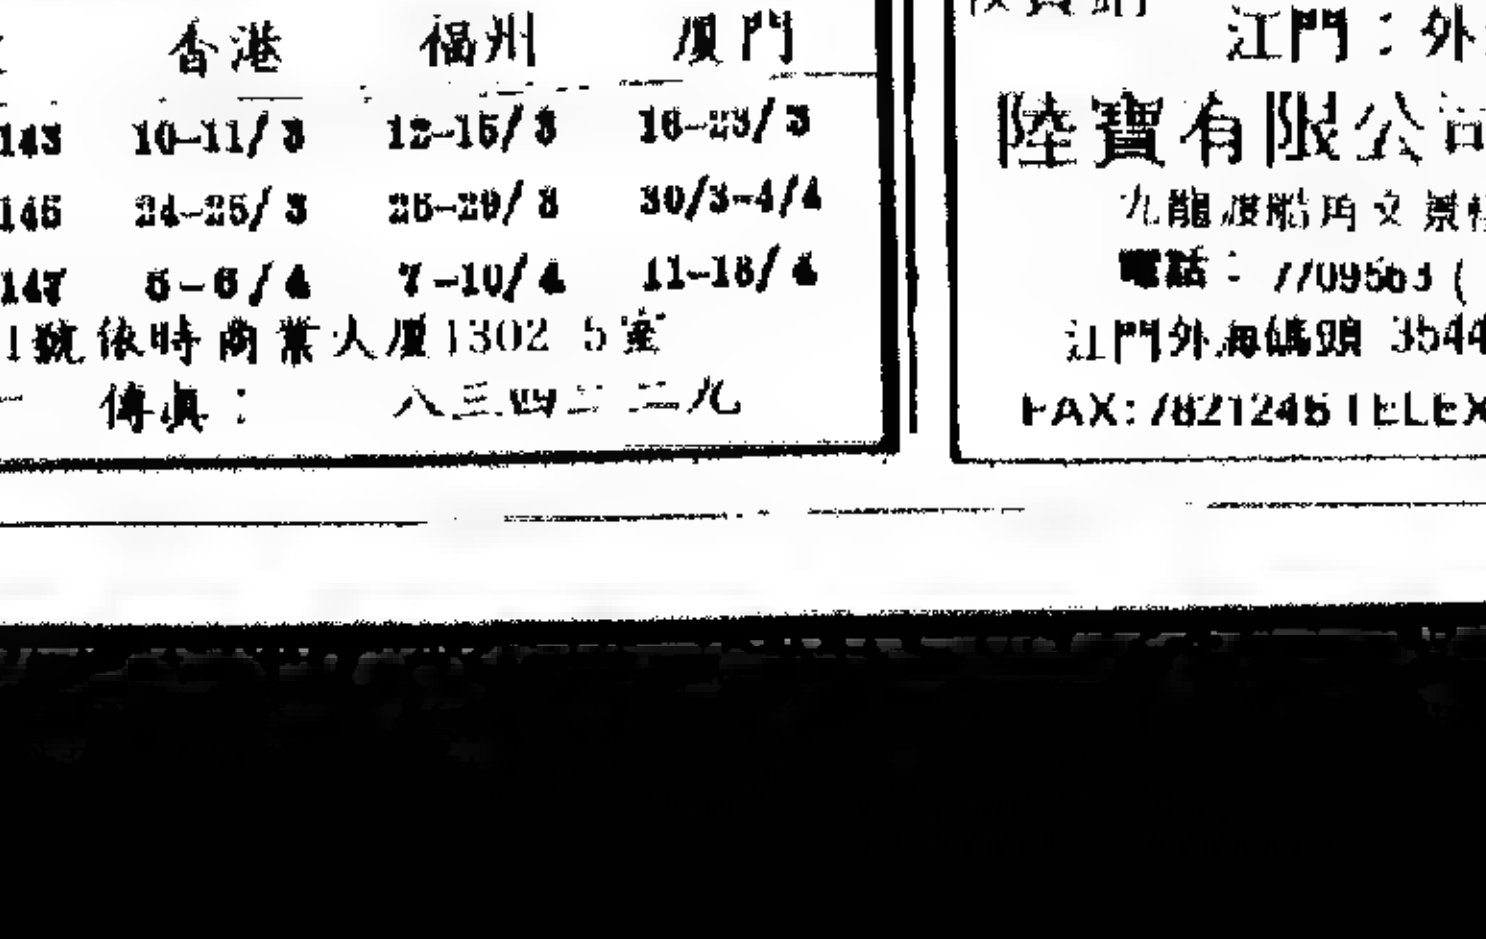 香港 福州 廈門
143 10-11/3 12-15/3 16-23/3
145 24-25/3 30/3-4/4
147 5-6/4 7-10/4 11-18/4
號依時商業大廈1302 5室
傳真： 八三四二二九
江門：外
陸寶有限公司
九龍渡船角文景樓
電話： 7709563 (
江門外海碼頭 3544
FAX: 7821246 TELEX